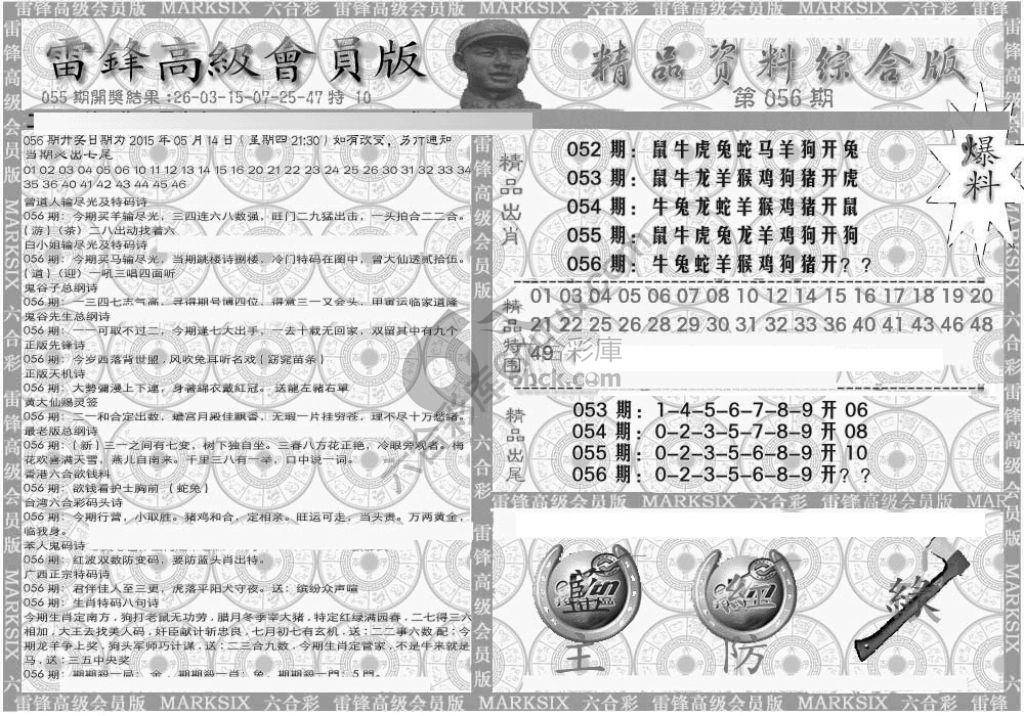 雷锋高级会员版 MARKSIX 六合彩 雷锋高级会员版 MARKSIX 六合彩 雷锋高级会员版 MARKSIX 六合彩
雷鋒高級會員版
精品资料综合版
055 期開獎結果 :26-03-15-07-25-47 特 10
第 056 期
爆料
056 期开奖日期为 2015 年 05 月 14 日（星期四 21:30）如有改变，另行通知
01 02 03 04 05 06 10 11 12 13 14 15 16 20 21 22 23 24 25 26 30 31 32 33 34
35 36 40 41 42 43 44 45 46
曾道人输尽光及特码诗
056 期：今期买羊输尽光，三四连六八数强，旺门二九猛出击，一头拍合二二合。
{游}（茶）二八出动找着六
白小姐输尽光及特码诗
056 期：今期买马输尽光，当期跳楼诗捌楼，冷门特码在图中，曾大仙送贰拾伍。
{道}（迎）一吼三唱四面听
鬼谷子总纲诗
056 期：一三四七志气高，寻得期号博四位，得意三一又会头，甲寅运临家道隆
鬼谷先生总纲诗
056 期：一一可取不过二，今期逢七大出手，一去十载无回家，双留其中有九个
正版先锋诗
056 期：今岁西落背世盟，风吹兔耳听名戏（窈窕苗条）
正版天机诗
056 期：大勢彌漫上下逮，身著綿衣戴紅冠。送龍左豬右單
黄大仙赐灵签
056 期：二一和合定出数，蟾宫月殿佳飘香，无瑕一片挂穷苍，理不尽十万愁绪。
最老版总纲诗
056 期：（新）三一之间有七变，树下独自坐。三春八方花正艳，冷眼旁观者。梅
花欢喜满天雪，燕儿自南来。千里三八有一举，口中说一词。
香港六合欲钱料
056 期：欲钱看护士胸前（蛇兔）
台湾六合彩码头诗
056 期：今期行营，小取胜。猪鸡和合，定相亲。旺运可走，当头贵。万两黄金，
临我身。
本人鬼码诗
056 期：红波双数防变码，要防蓝头肖出特。
广西正宗特码诗
056 期：君伴佳人至三更，虎落平阳犬守夜。送：缤纷众声喧
056 期：生肖特码八句诗
今期生肖定南方，狗打老鼠无功劳，腊月冬季宰大猪，特定红绿满园春，二七得三六
相加，大王去找美人码，奸臣献计斩忠良，七月初七有玄机，送：二二事六数 配：今
期龙羊争上奖，狗头军师巧计谋，送：二三合九数，今期生肖定管家，不是牛来就是
马，送：三五中央奖
056 期：期期殺一局：金，期期殺一肖：兔，期期殺一門：5 門。
精品出肖
052 期：鼠牛虎兔蛇马羊狗开兔
053 期：鼠牛龙羊猴鸡狗猪开虎
054 期：牛兔龙蛇羊猴鸡猪开鼠
055 期：鼠牛虎兔龙羊鸡狗开狗
056 期：牛兔蛇羊猴鸡狗猪开？？
精品特围
01 03 04 05 06 07 08 10 12 14 15 16 17 18 19 20
21 22 25 26 28 29 30 31 32 33 36 40 41 43 46 48
49
精品出尾
053 期：1-4-5-6-7-8-9 开 06
054 期：0-2-3-5-7-8-9 开 08
055 期：0-2-3-5-6-8-9 开 10
056 期：0-2-3-5-6-8-9 开？？
雷锋高级会员版 MARKSIX 六合彩 雷锋高级会员版 MARKSIX
藍
紅
綠
主
防
雷锋高级会员版 MARKSIX 六合彩 雷锋高级会员版 MARKSIX 六合彩 雷锋高级会员版 MARKSIX 六合彩